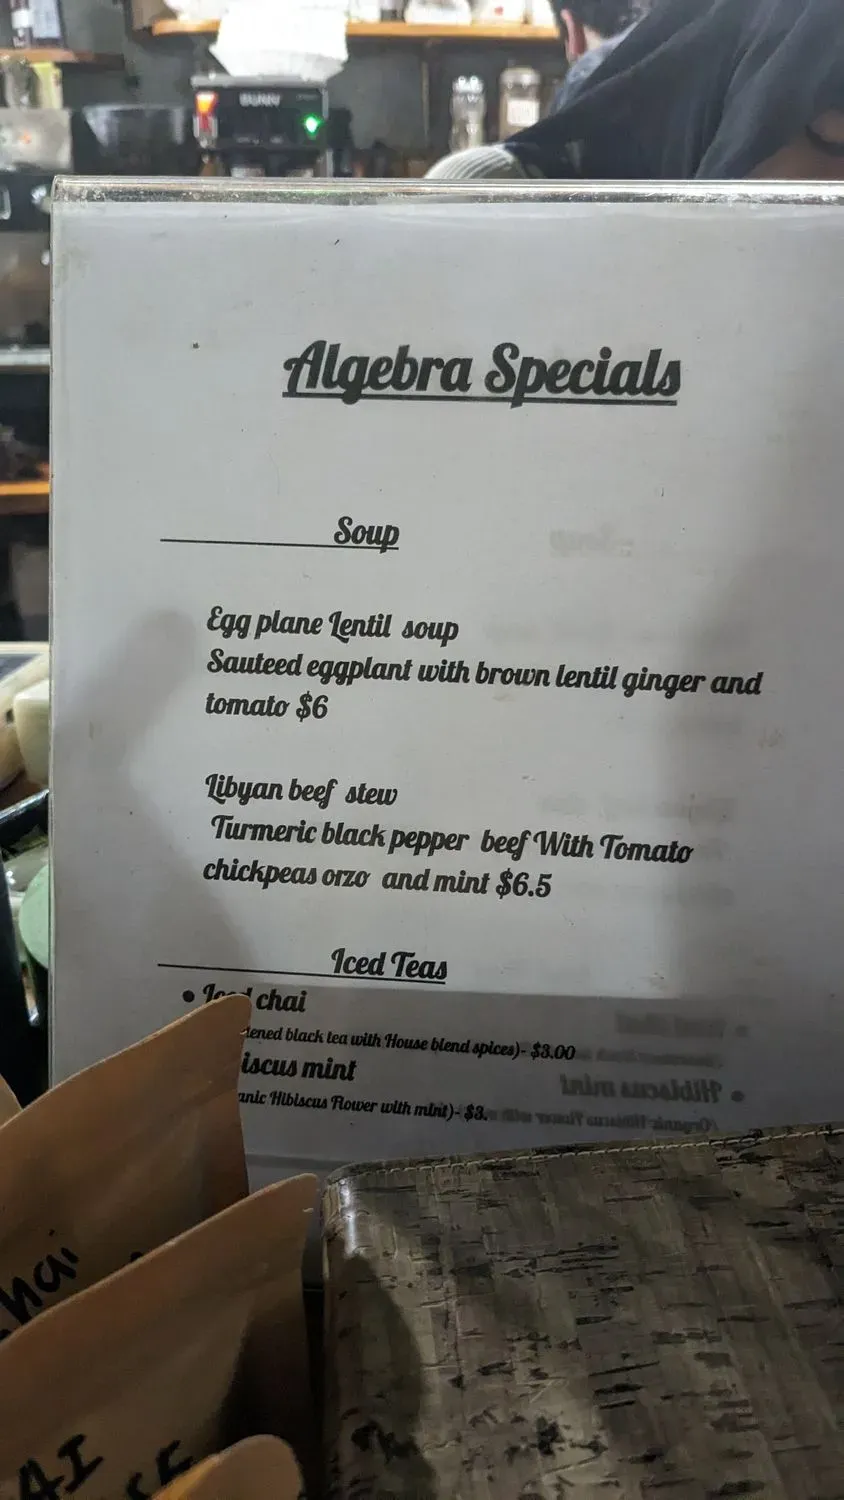 BUNN
Algebra Specials
Soup
Egg plane Lentil soup
Sauteed eggplant with brown lentil ginger and
tomato $6
Libyan beef stew
Turmeric black pepper beef With Tomato
chickpeas orzo and mint $6.5
Iced Teas
• Iced chai
black tea with House blend spices)- $3.00
mint
Hibiscus Flower with mint)- $3.
hai
AI